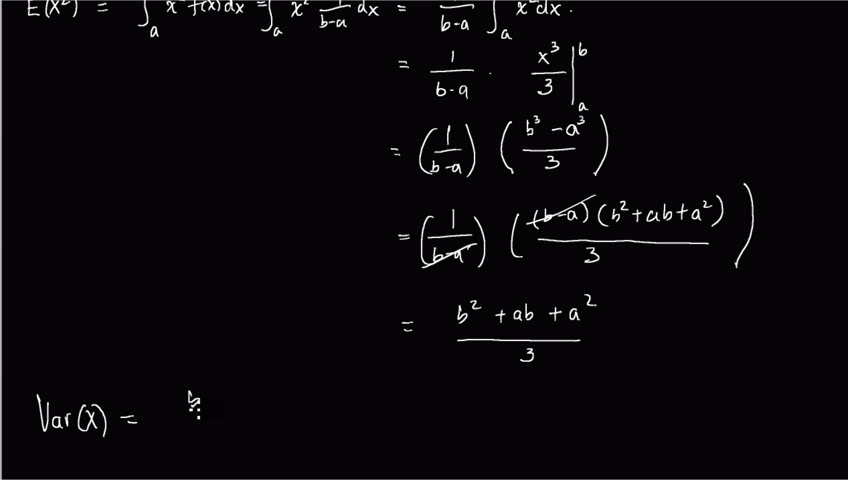 E(X²) = ∫ₐ x² f(x) dx = ∫ₐ x² 1/(b-a) dx = 1/(b-a) ∫ₐ x² dx.
= 1/(b-a) · x³/3 |ₐᵇ
= (1/(b-a)) ((b³ - a³)/3)
= (1/(b-a)) ((b-a)(b² + ab + a²)/3)
= (b² + ab + a²)/3
Var(X) =